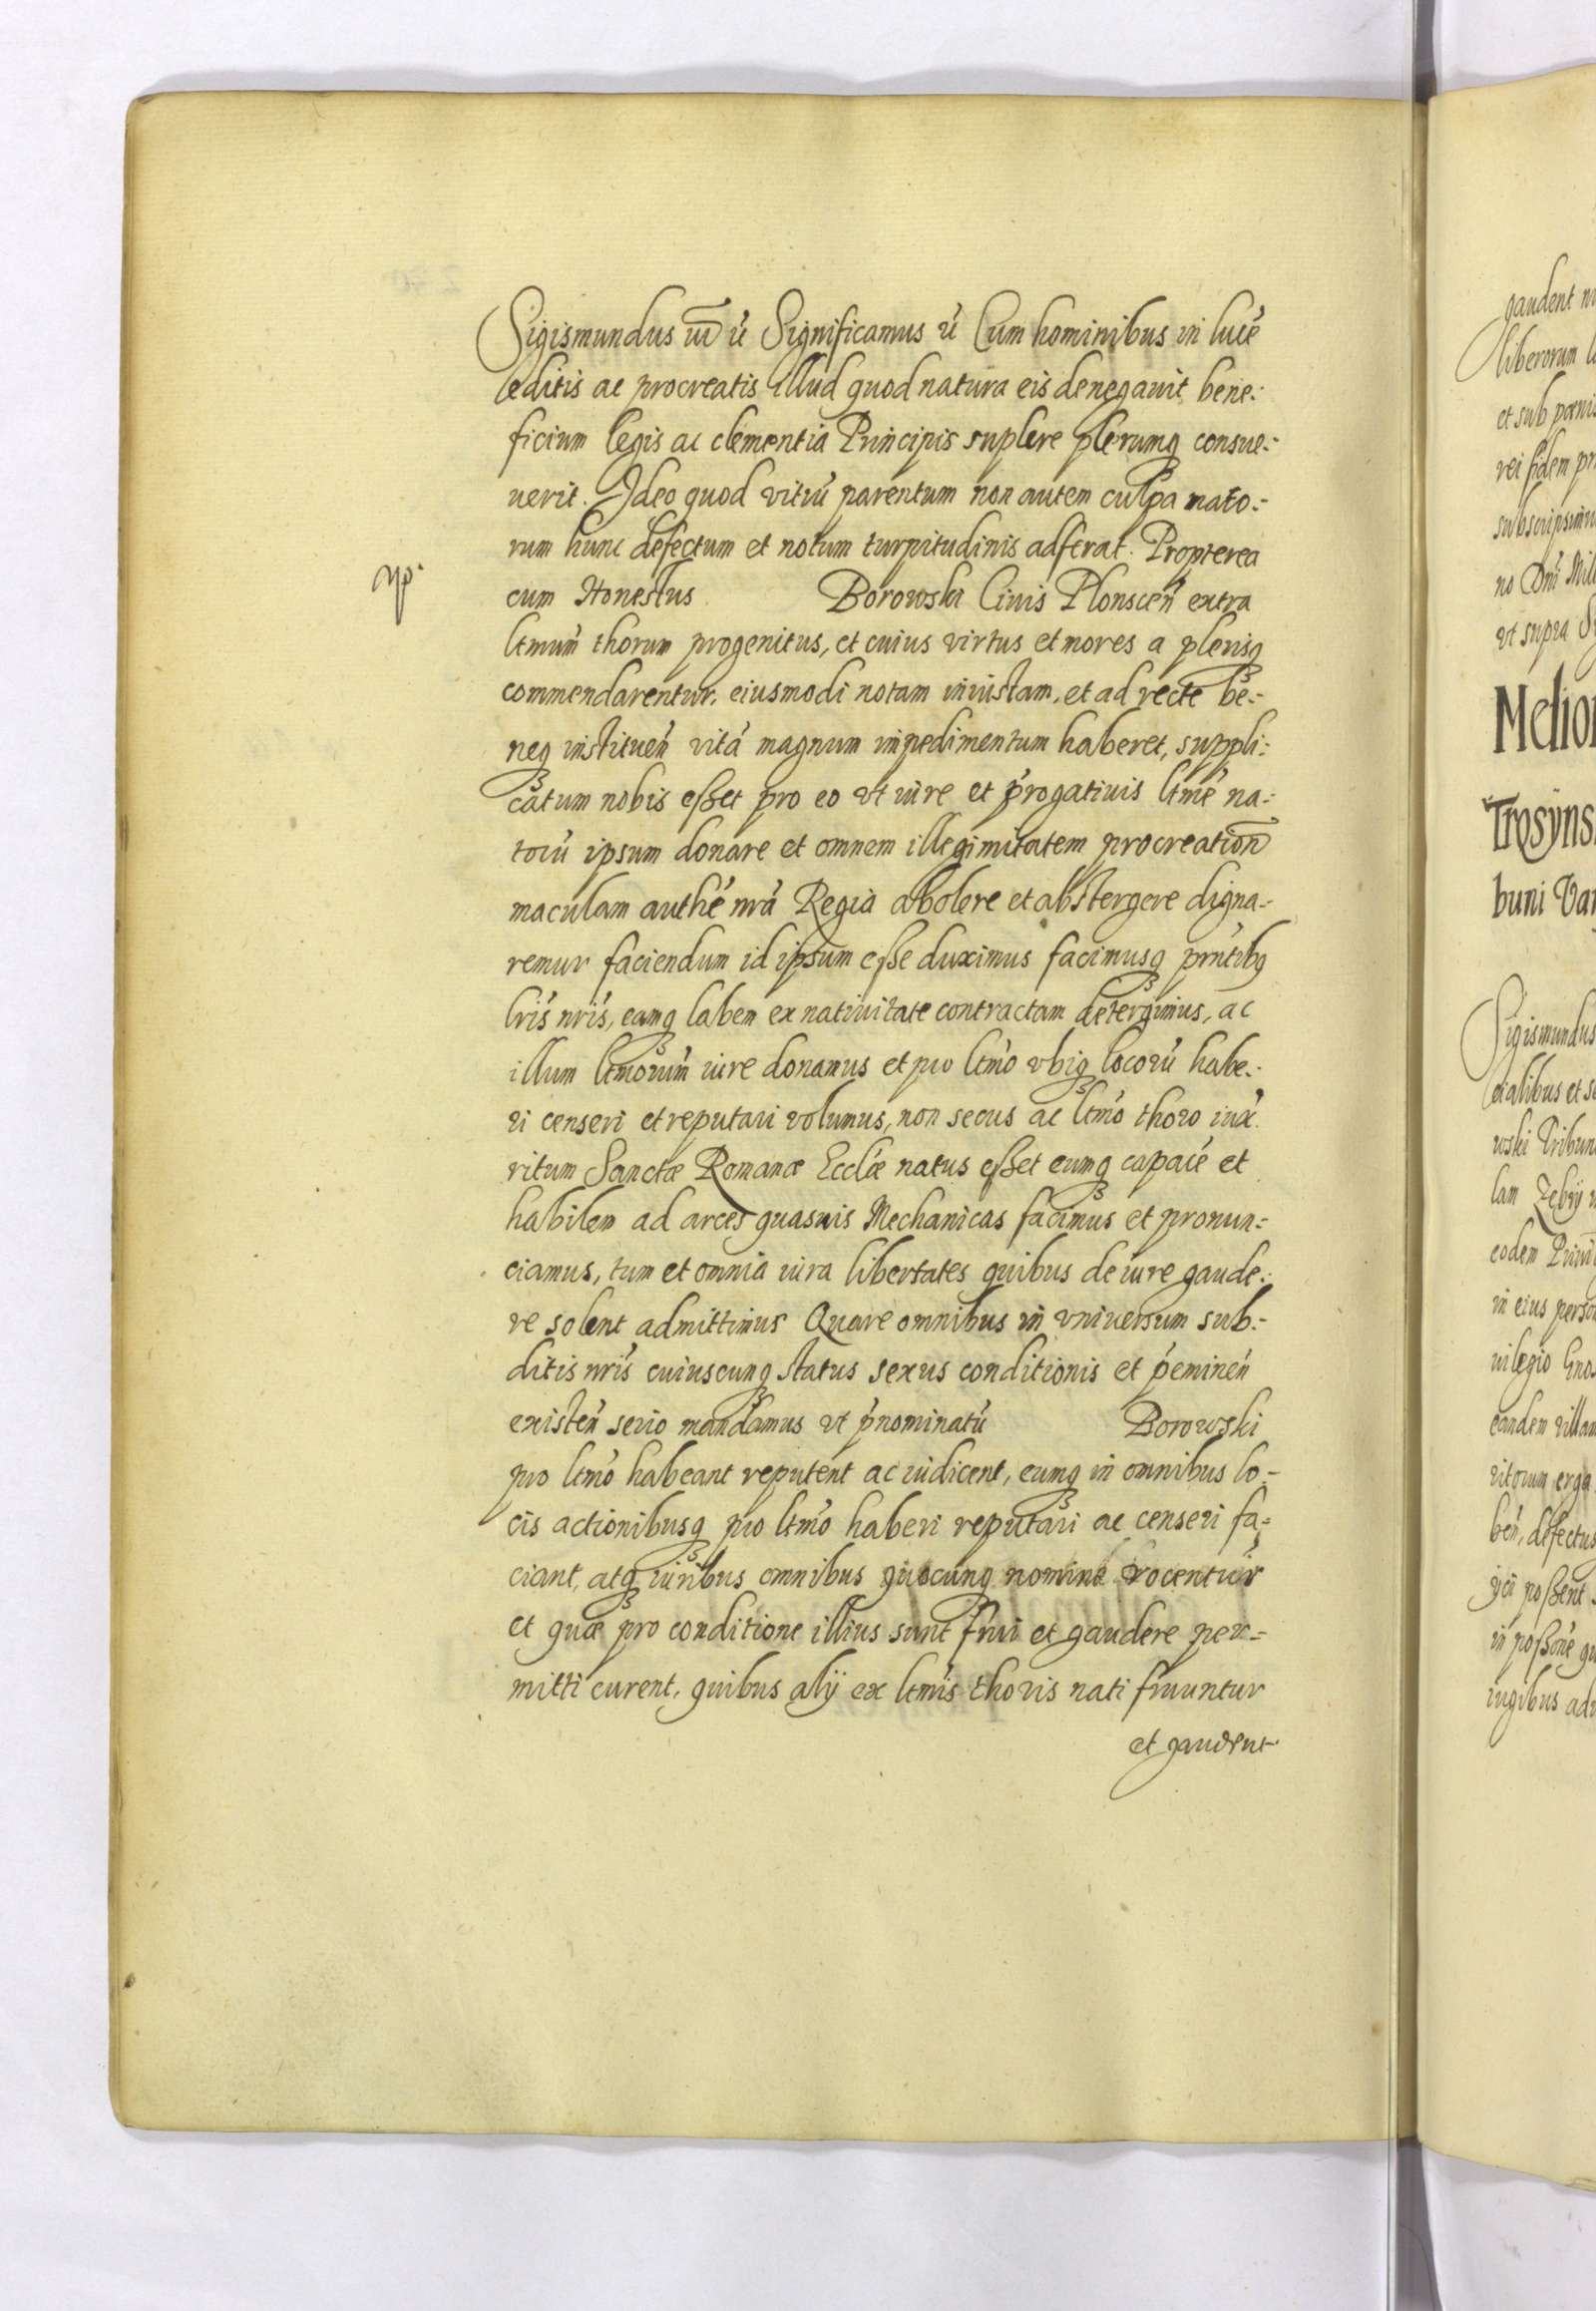 Sigismundus III &c̃ Significamus &c̃ Cum hominibus in lucē
editis ac procreatis illud quod natura eis denegavit bene:
ficium legis ac clementia Principis suplere plerumq consue:
verit. Ideo quod vitiū parentum non autem culpa nato:
rum hunc defectum et notam turpitudinis adferat. Propterea
cum Honestus Borowski Civis Plonsceñ extra
ltmum̃ thorum progenitus, et cuius virtus et mores a plerisq
commendarentur, eiusmodi notam iniustam, et ad recte be:
neq instituen̄ vitā magnum impedimentum haberet, suppli:
catum nobis esset pro eo vt iure et p̃rogativis ltme na:
torū ipsum donare et omnem illegimitatem procreation̄
maculam authē nrā Regia abolere et abstergere digna:
remur faciendum id ipsum esse duximus facimusq pñtibq
lris̃ nris̃, eamq labem ex nativitate contractam detergimus, ac
illum ltmorum̃ iure donamus et pro ltmõ vbiq locorū habe:
ri censeri et reputari volumus, non secus ac ltmõ thoro iux̃
ritum Sanctæ Romanæ Ecclæ̃ natus esset eumq capacē et
habilem ad artes quasuis Mechanicas facimus et pronun:
ciamus, tum et omnia iura libertates quibus de iure gaude:
re solent admittimus Quare omnibus in vniuersum sub:
ditis nris̃ cuiuscunq status sexus conditionis et p̃eminen̄
existen̄ serio mandamus vt p̃nominatū Borowski
pro ltmõ habeant reputent ac iudicent, eumq in omnibus lo-
cis actionibusq pro ltmõ haberi reputari ac censeri fa:
ciant, atq iuribus omnibus quocunq nomine vocentur
et quæ pro conditione illius sunt frui et gaudere per:
mitti curent, quibus alÿ ex ltmis̃ thoris nati fruuntur
et gaudent
gaudent
liberorum
et sub pœnis
rei fidem
subscripsimus
no Dni
vt supra
Sigismundus
wski Tribun
lam
eodem
in eius
vilegio
eandem villam
vitorum erga
ben̄, defectus
possent
in
iugibus